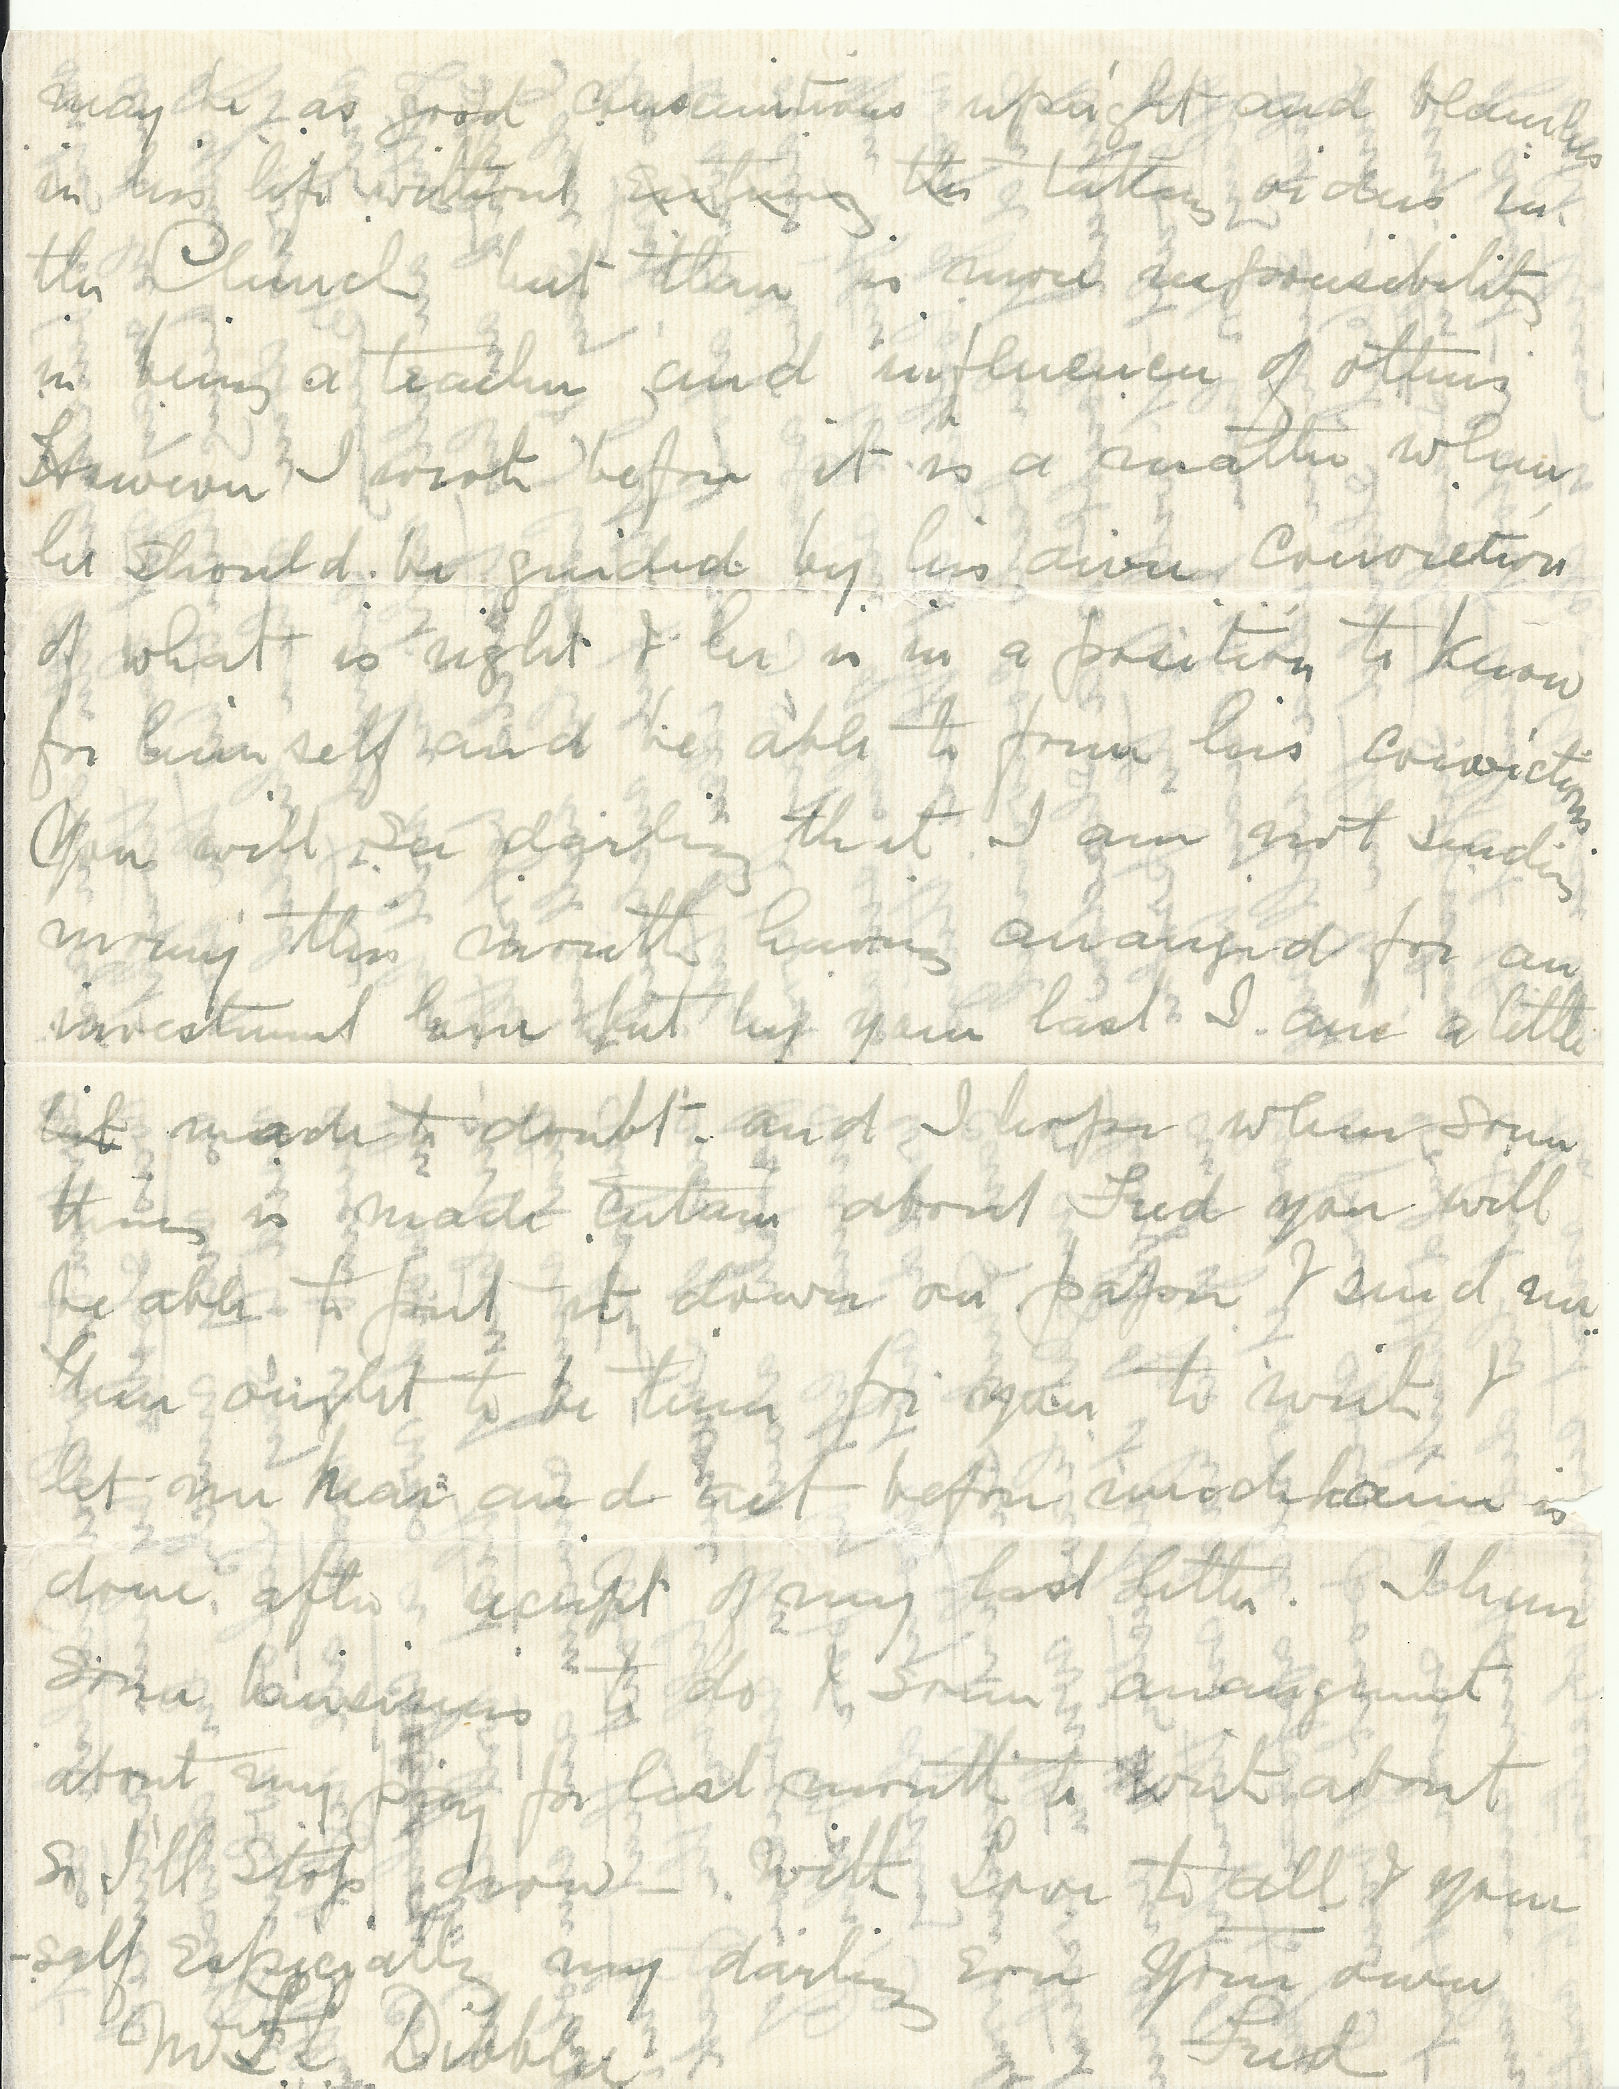 may be as good conscientious upright and blameless
in his life without entering the taking orders in
the Church but there is more responsibility
in being a teacher and influencer of others
However I wrote before it is a matter where
he should be guided by his own conviction
of what is right & he is in a position to know
for himself and be able to form his convictions.
You will see darling that I am not sending
money this month having arranged for an
investment here but by your last I am a little
bit made to doubt. and I hope when some
thing is made certain about Fred you will
be able to put it down on paper & send me.
There ought to be time for you to write &
let me hear and act before mid
done after receipt of my last letter. I have
some business to do & some arrangement
about my pay for last month to write about
so I'll stop now — with Love to all & your
-self especially my darling ever Your own
Mrs Dibblee Fred